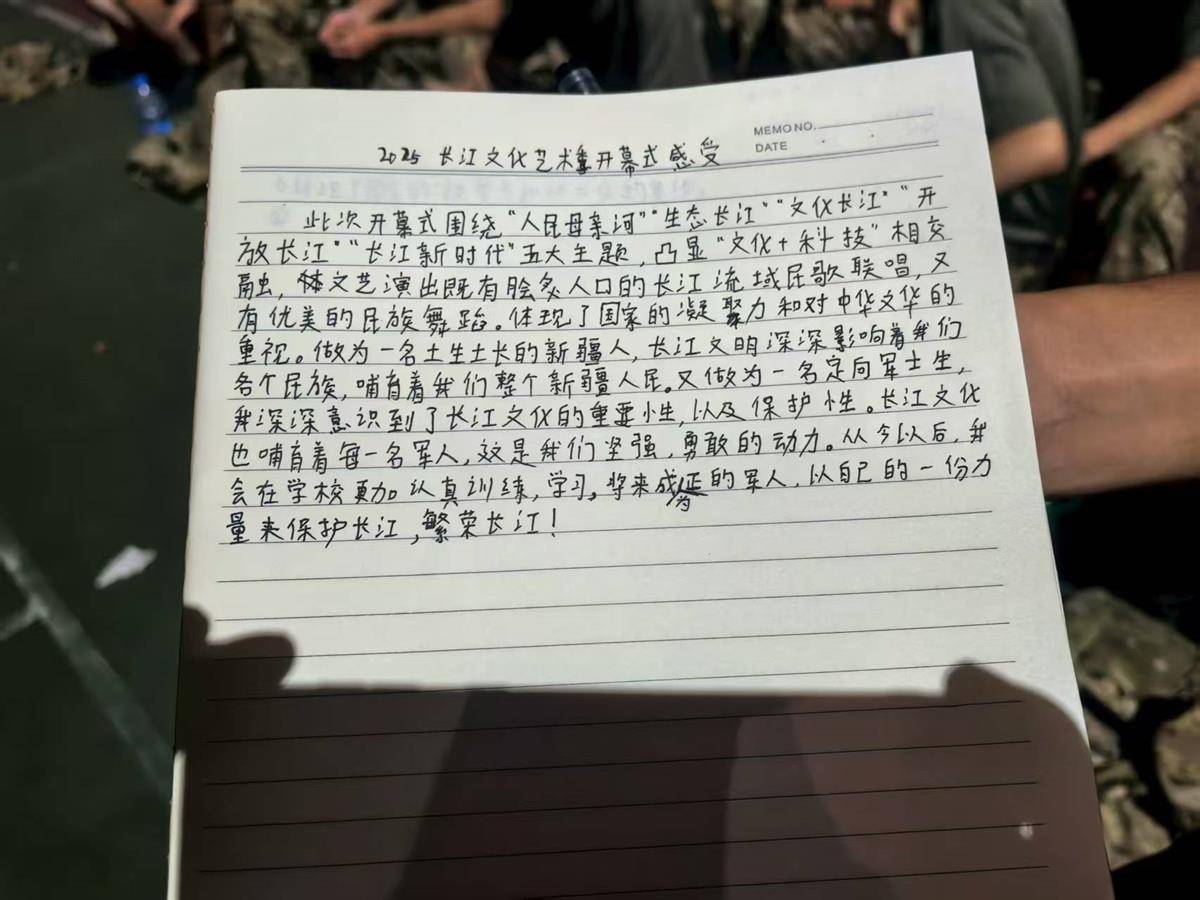 MEMO NO.
DATE
2025 长江文化艺术季开幕式感受
此次开幕式围绕“人民母亲河”“生态长江”“文化长江”“开
放长江”“长江新时代”五大主题，凸显“文化+科技”相交
融，文艺演出既有脍炙人口的长江流域民歌联唱，又
有优美的民族舞蹈。体现了国家的凝聚力和对中华文华的
重视。做为一名土生土长的新疆人，长江文明深深影响着我们
各个民族，哺育着我们整个新疆人民。又做为一名定向军士生，
我深深意识到了长江文化的重要性，以及保护性。长江文化
也哺育着每一名军人，这是我们坚强，勇敢的动力。从今以后，我
会在学校更加认真训练，学习。将来成为真正的军人，以自己的一份力
量来保护长江，繁荣长江！